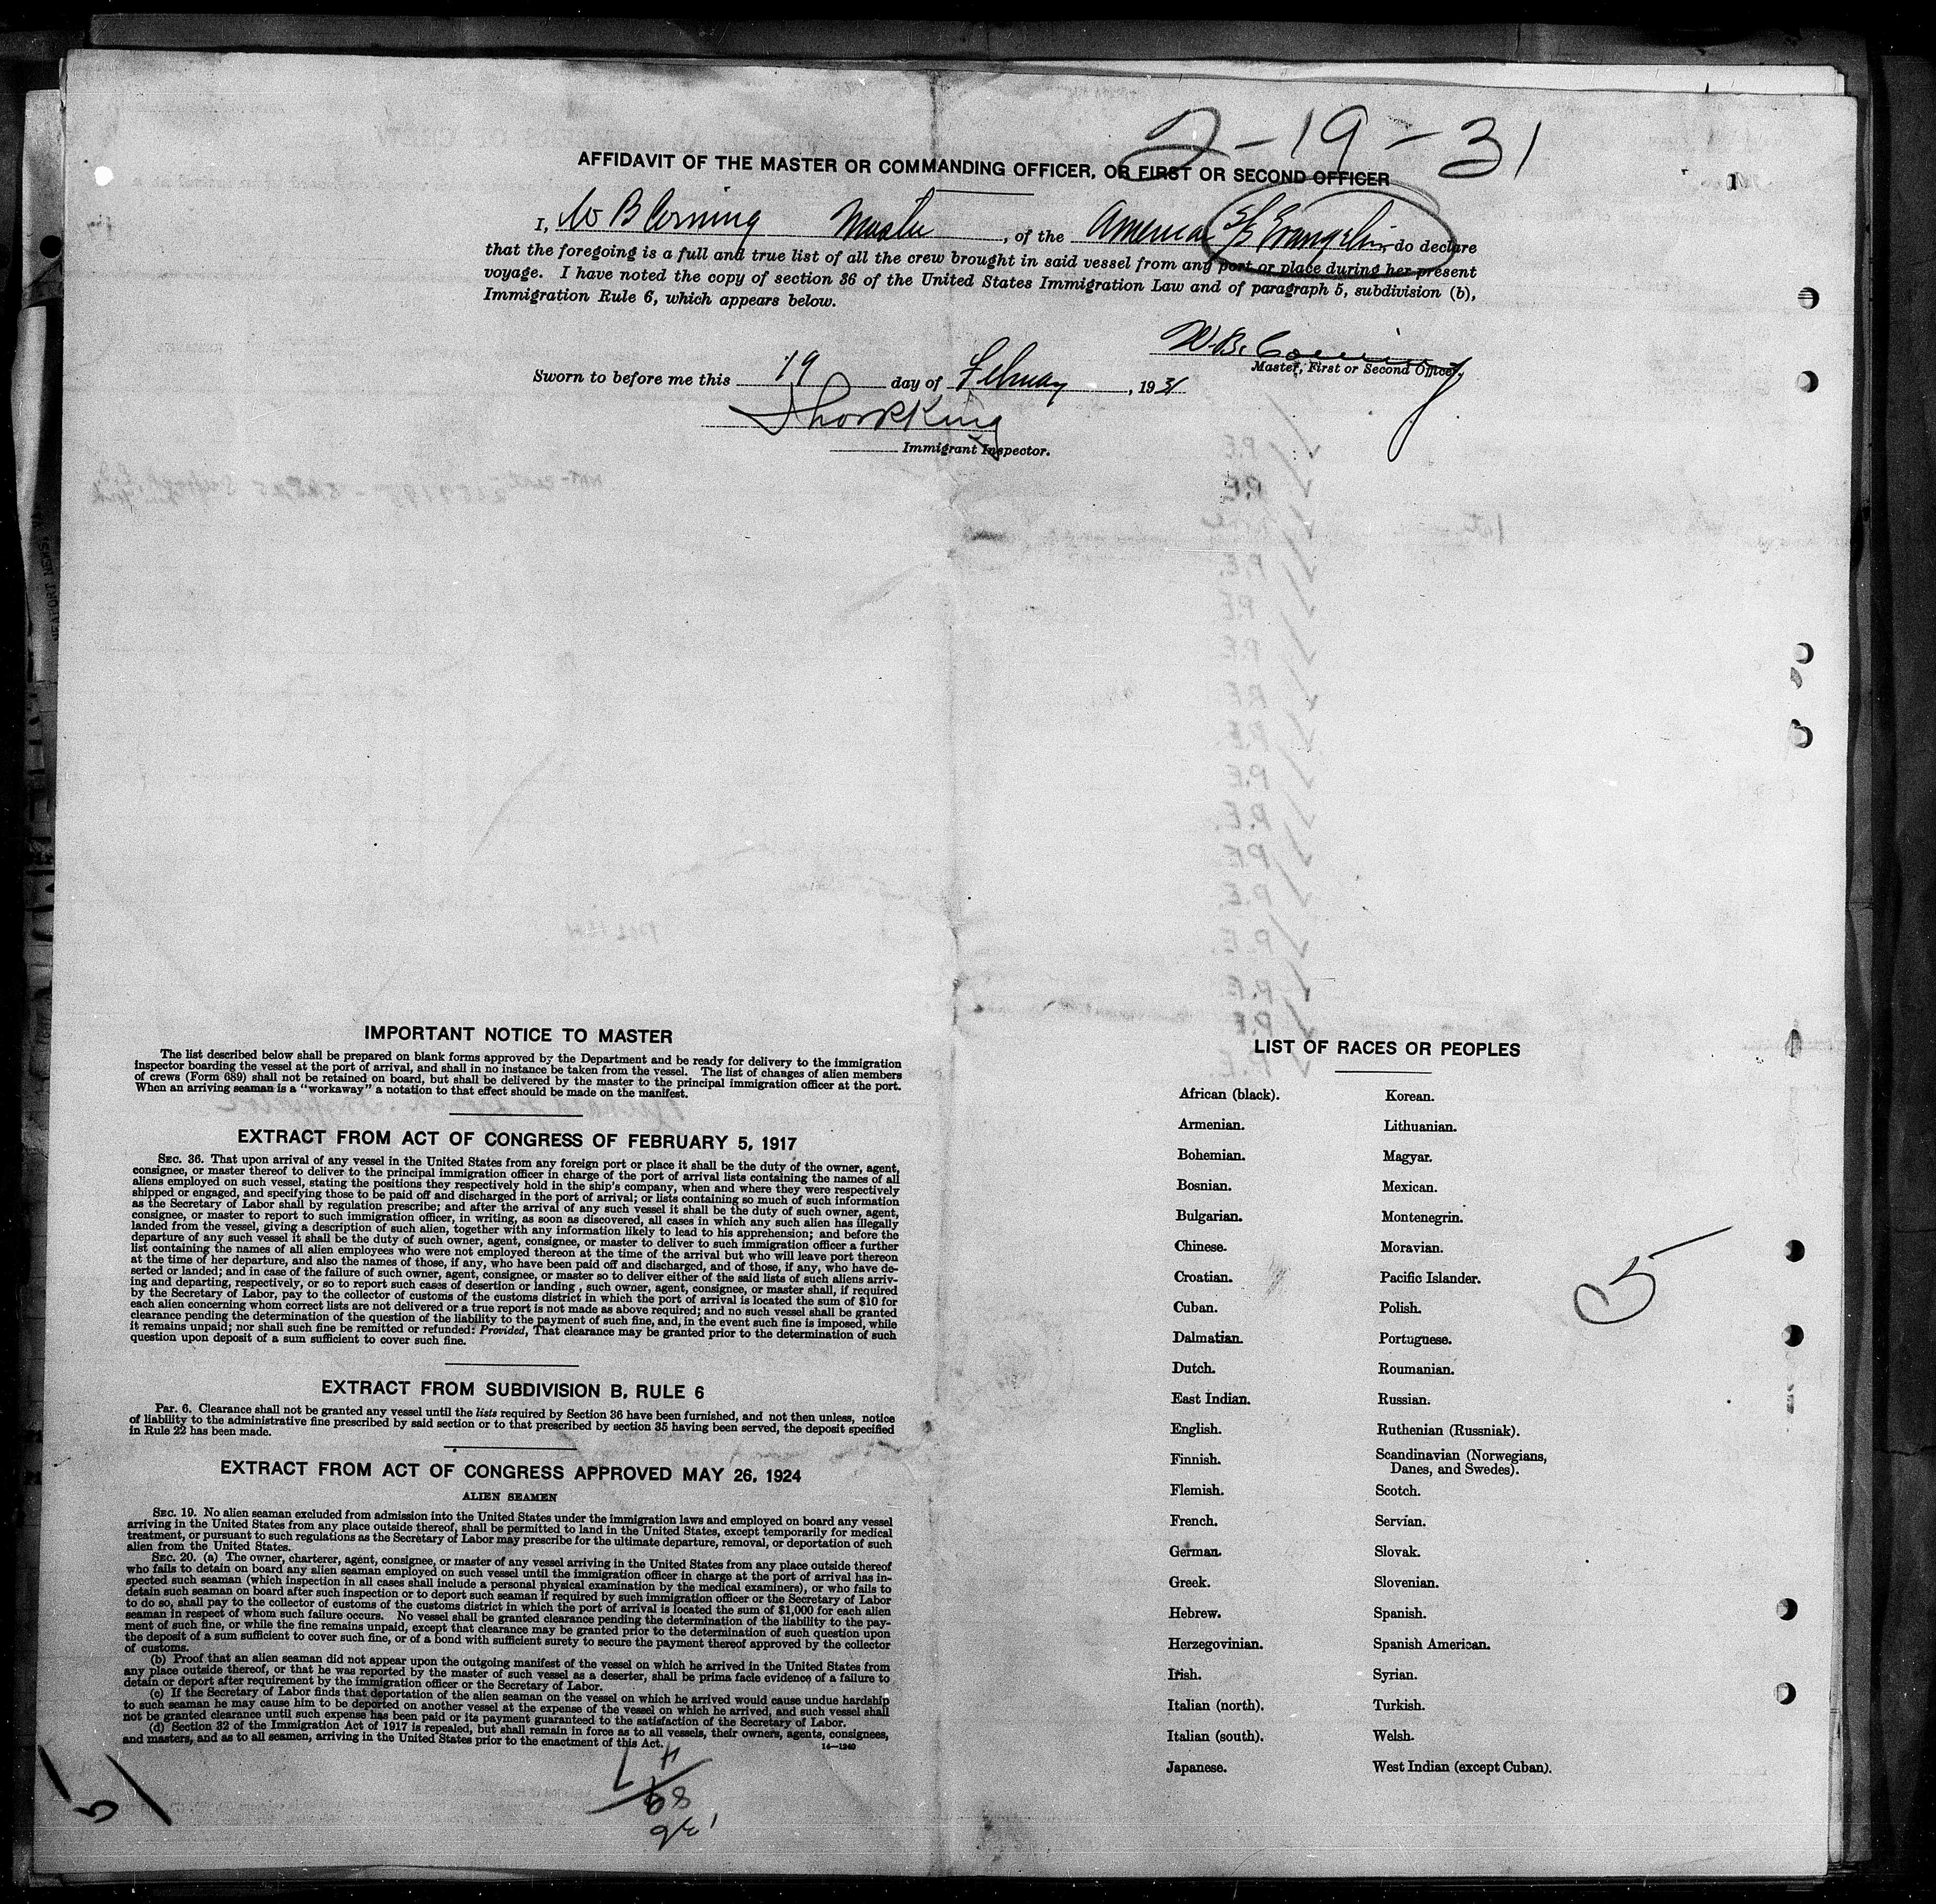 2-19-31
AFFIDAVIT OF THE MASTER OR COMMANDING OFFICER, OR FIRST OR SECOND OFFICER
I, W B Corning Master, of the American S/S Evangeline, do declare
that the foregoing is a full and true list of all the crew brought in said vessel from any port or place during her present
voyage. I have noted the copy of section 36 of the United States Immigration Law and of paragraph 5, subdivision (b),
Immigration Rule 6, which appears below.
W. B. Corning
Master, First or Second Officer.
Sworn to before me this 19 day of February, 1931
Immigrant Inspector.
IMPORTANT NOTICE TO MASTER
The list described below shall be prepared on blank forms approved by the Department and be ready for delivery to the immigration
inspector boarding the vessel at the port of arrival, and shall in no instance be taken from the vessel. The list of changes of alien members
of crews (Form 689) shall not be retained on board, but shall be delivered by the master to the principal immigration officer at the port.
When an arriving seaman is a "workaway" a notation to that effect should be made on the manifest.
EXTRACT FROM ACT OF CONGRESS OF FEBRUARY 5, 1917
SEC. 36. That upon arrival of any vessel in the United States from any foreign port or place it shall be the duty of the owner, agent,
consignee, or master thereof to deliver to the principal immigration officer in charge of the port of arrival lists containing the names of all
aliens employed on such vessel, stating the positions they respectively hold in the ship's company, when and where they were respectively
shipped or engaged, and specifying those to be paid off and discharged in the port of arrival; or lists containing so much of such information
as the Secretary of Labor shall by regulation prescribe; and after the arrival of any such vessel it shall be the duty of such owner, agent,
consignee, or master to report to such immigration officer, in writing, as soon as discovered, all cases in which any such alien has illegally
landed from the vessel, giving a description of such alien, together with any information likely to lead to his apprehension; and before the
departure of any such vessel it shall be the duty of such owner, agent, consignee, or master to deliver to such immigration officer a further
list containing the names of all alien employees who were not employed thereon at the time of the arrival but who will leave port thereon
at the time of her departure, and also the names of those, if any, who have been paid off and discharged, and of those, if any, who have de-
serted or landed; and in case of the failure of such owner, agent, consignee, or master so to deliver either of the said lists of such aliens arriv-
ing and departing, respectively, or so to report such cases of desertion or landing, such owner, agent, consignee, or master shall, if required
by the Secretary of Labor, pay to the collector of customs of the customs district in which the port of arrival is located the sum of $10 for
each alien concerning whom correct lists are not delivered or a true report is not made as above required; and no such vessel shall be granted
clearance pending the determination of the question of the liability to the payment of such fine, and, in the event such fine is imposed, while
it remains unpaid; nor shall such fine be remitted or refunded: Provided, That clearance may be granted prior to the determination of such
question upon deposit of a sum sufficient to cover such fine.
EXTRACT FROM SUBDIVISION B, RULE 6
PAR. 6. Clearance shall not be granted any vessel until the lists required by Section 36 have been furnished, and not then unless, notice
of liability to the administrative fine prescribed by said section or to that prescribed by section 35 having been served, the deposit specified
in Rule 22 has been made.
EXTRACT FROM ACT OF CONGRESS APPROVED MAY 26, 1924
ALIEN SEAMEN
SEC. 19. No alien seaman excluded from admission into the United States under the immigration laws and employed on board any vessel
arriving in the United States from any place outside thereof, shall be permitted to land in the United States, except temporarily for medical
treatment, or pursuant to such regulations as the Secretary of Labor may prescribe for the ultimate departure, removal, or deportation of such
alien from the United States.
SEC. 20. (a) The owner, charterer, agent, consignee, or master of any vessel arriving in the United States from any place outside thereof
who fails to detain on board any alien seaman employed on such vessel until the immigration officer in charge at the port of arrival has in-
spected such seaman (which inspection in all cases shall include a personal physical examination by the medical examiners), or who fails to
detain such seaman on board after such inspection or to deport such seaman if required by such immigration officer or the Secretary of Labor
to do so, shall pay to the collector of customs of the customs district in which the port of arrival is located the sum of $1,000 for each alien
seaman in respect of whom such failure occurs. No vessel shall be granted clearance pending the determination of the liability to the pay-
ment of such fine, or while the fine remains unpaid, except that clearance may be granted prior to the determination of such question upon
the deposit of a sum sufficient to cover such fine, or of a bond with sufficient surety to secure the payment thereof approved by the collector
of customs.
(b) Proof that an alien seaman did not appear upon the outgoing manifest of the vessel on which he arrived in the United States from
any place outside thereof, or that he was reported by the master of such vessel as a deserter, shall be prima facie evidence of a failure to
detain or deport after requirement by the immigration officer or the Secretary of Labor.
(c) If the Secretary of Labor finds that deportation of the alien seaman on the vessel on which he arrived would cause undue hardship
to such seaman he may cause him to be deported on another vessel at the expense of the vessel on which he arrived, and such vessel shall
not be granted clearance until such expense has been paid or its payment guaranteed to the satisfaction of the Secretary of Labor.
(d) Section 32 of the Immigration Act of 1917 is repealed, but shall remain in force as to all vessels, their owners, agents, consignees,
and masters, and as to all seamen, arriving in the United States prior to the enactment of this Act.
14—1240
LIST OF RACES OR PEOPLES
African (black). Korean.
Armenian. Lithuanian.
Bohemian. Magyar.
Bosnian. Mexican.
Bulgarian. Montenegrin.
Chinese. Moravian.
Croatian. Pacific Islander.
Cuban. Polish.
Dalmatian. Portuguese.
Dutch. Roumanian.
East Indian. Russian.
English. Ruthenian (Russniak).
Finnish. Scandinavian (Norwegians,
Danes, and Swedes).
Flemish. Scotch.
French. Servian.
German. Slovak.
Greek. Slovenian.
Hebrew. Spanish.
Herzegovinian. Spanish American.
Irish. Syrian.
Italian (north). Turkish.
Italian (south). Welsh.
Japanese. West Indian (except Cuban).
5
5